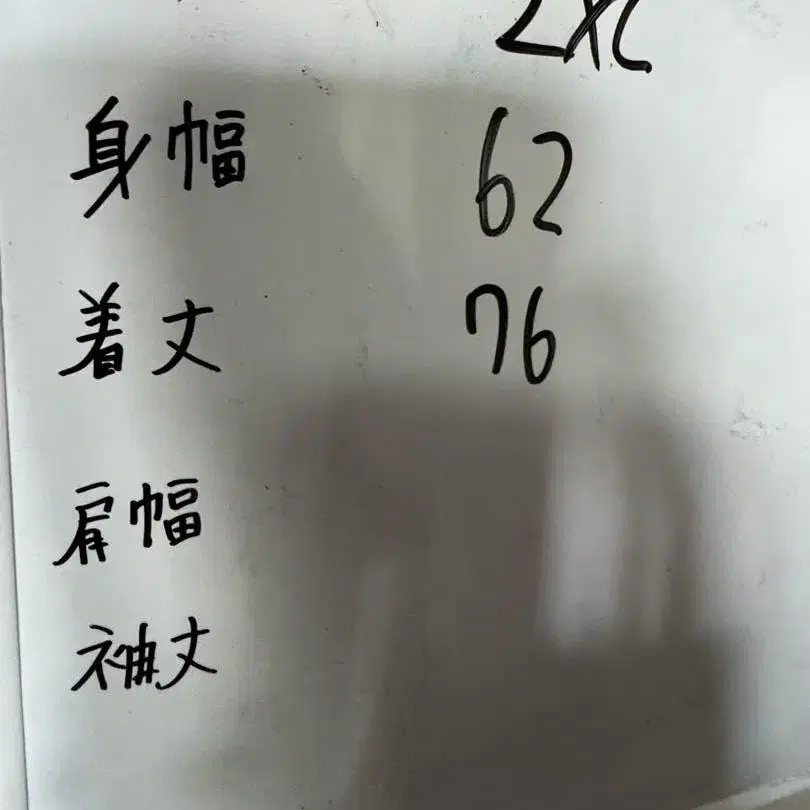 2XL
身幅 62
着丈 76
肩幅
袖丈